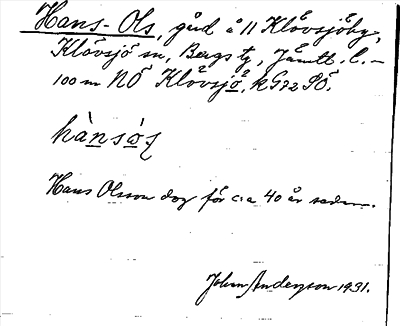 Hans-Ols, gård å 11 Klövsjöby,
Klövsjö sn, Bergs tg, Jämtl. l. –
100 m NÖ Klövsjö, k G72 SÖ.
hànsòs
Hans Olsson dog för c:a 40 år sedan.
John Anderzon 1931.